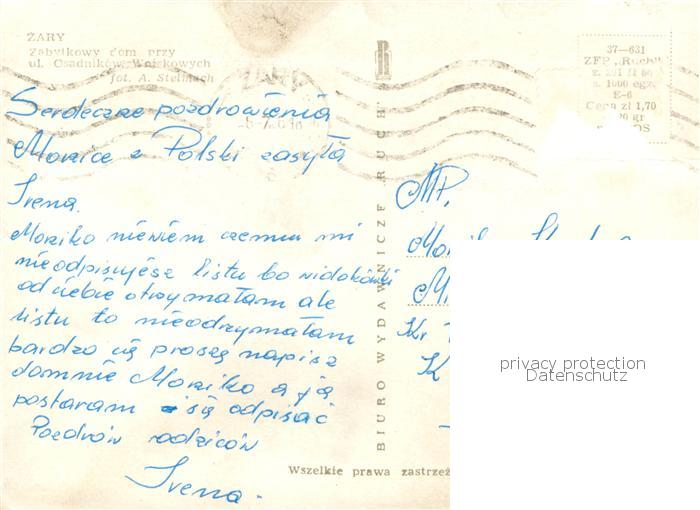 ŻARY
Zabytkowy dom przy
ul. Osadników Wojskowych
fot. A. Stelmach
37—631
ZFP „Ruch”
s. 1000 egz.
E-6
Cena zł 1,70
20 gr
Serdeczne pozdrowienia
Morzice z Polski zasyła
Irena.
Morziko niewiem czemu mi
nieodpisujesz listu bo widokówki
od ciebie otrzymałam ale
listu to nieodzymałam
bardzo cię proszę napisz
domnie Morziko a ja
postaram się odpisać
Pozdrów rodziców
Irena.
BIURO WYDAWNICZE RUCH
Wszelkie prawa zastrzeż
privacy protection
Datenschutz